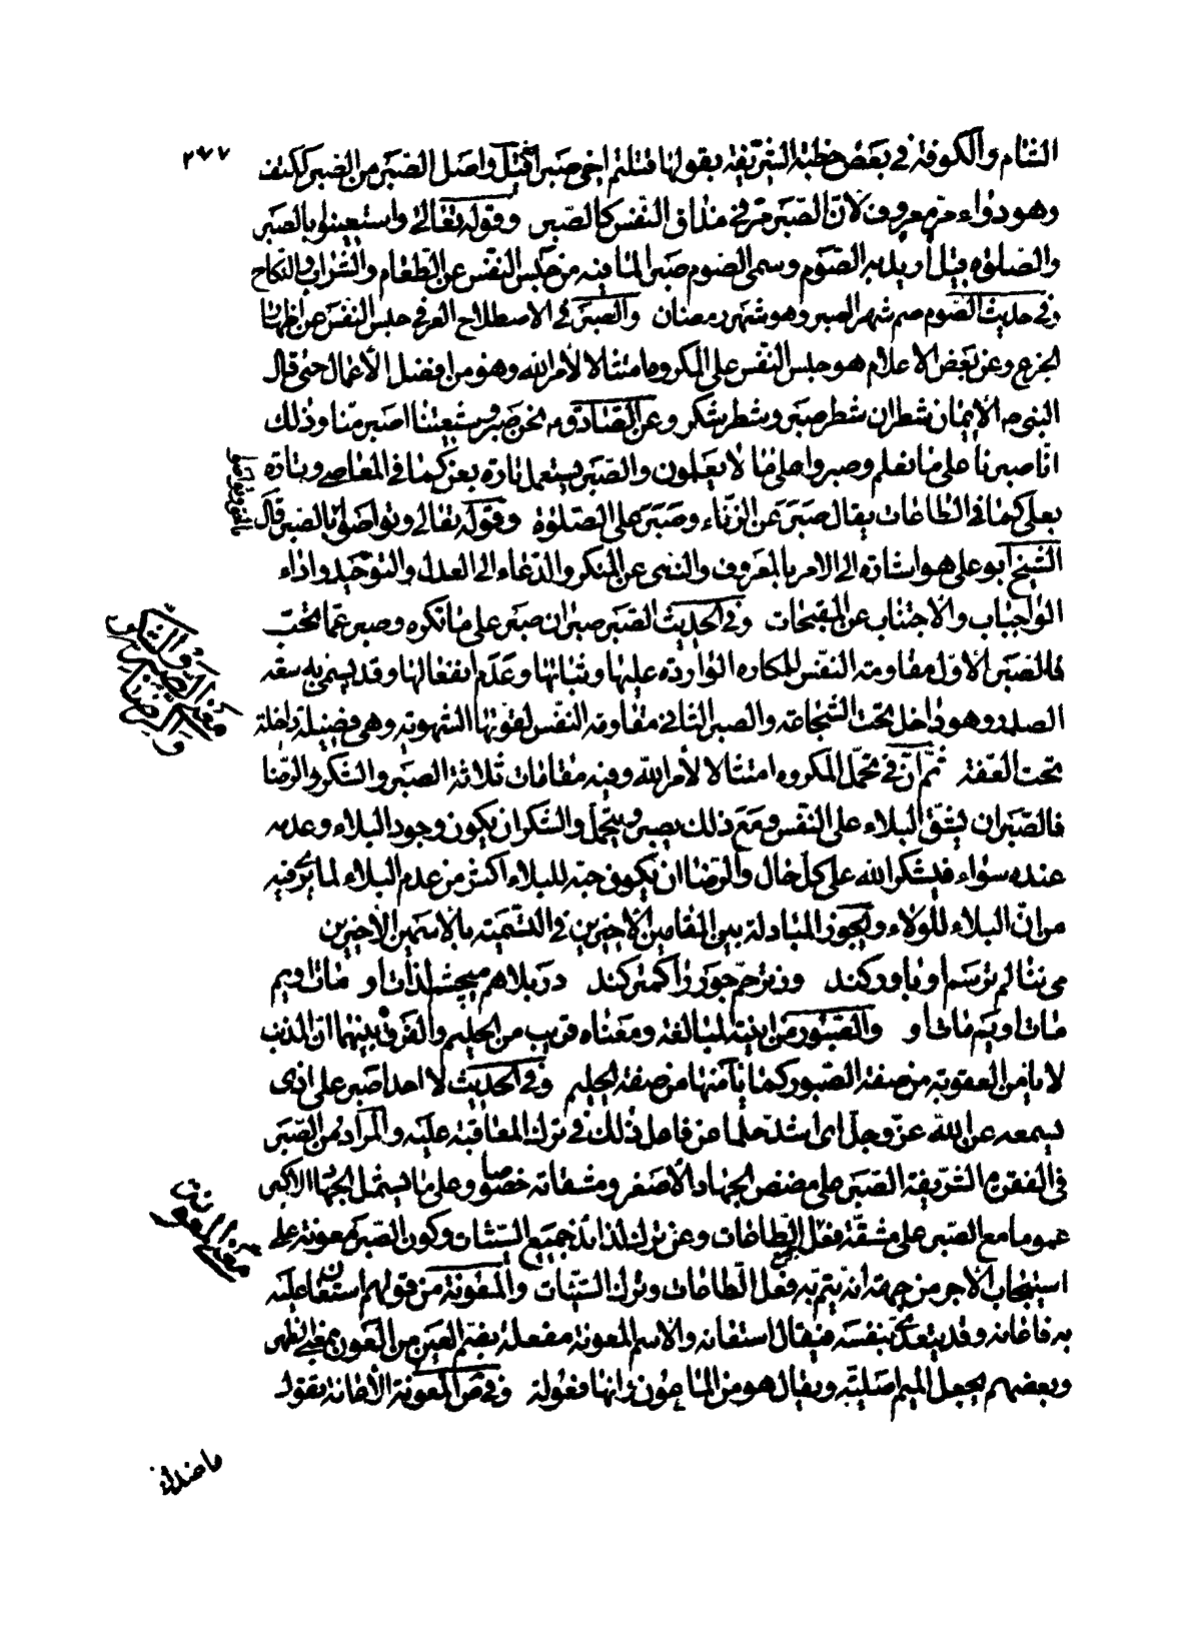 ٢٦٧
الشام والكوفة في بعض خطبة الشريفة بقولها قتلتم اخي صبرا اي قتل واصل الصبر من الصبر ككتف
وهو دواء مر معروف لان الصبر مر في مذاق النفس كالصبر وقوله تعالى واستعينوا بالصبر
والصلوة قيل اريد به الصوم وسمى الصوم صبرا لما فيه من حبس النفس عن الطعام والشراب والنكاح
وفي حديث الصوم صم شهر الصبر وهو شهر رمضان والصبر في الاصطلاح العرفي حبس النفس عن اظهار
الجزع وعن بعض الاعلام هو حبس النفس على المكروه امتثالا لأمر الله وهو من افضل الأعمال حتى قال
النبي ص الإيمان شطران شطر صبر وشطر شكر وعن الصادق ع نحن صبر وشيعتنا اصبر منا وذلك
انا صبرنا على ما نعلم وصبروا على ما لا يعلمون والصبر يستعمل تارة بعن كما في المعاصي وتارة
بعلى كما في الطاعات يقال صبر عن الزناء وصبر على الصلوة وقوله تعالى وتواصوا بالصبر قال
الشيخ ابو على هو اشارة الى الامر بالمعروف والنهى عن المنكر والدعاء الى العدل والتوحيد واداء
الواجبات والاجتناب عن المقبحات وفي الحديث الصبر صبران صبر على ما تكره وصبر عما تحب
فالصبر الاول مقاومة النفس للمكاره الواردة عليها وثباتها وعدم انفعالها وقد يسمى به سعة
الصدر وهو داخل تحت الشجاعة والصبر الثاني مقاومة النفس لقوتها الشهوية وهي فضيلة داخلة
تحت العفة ثم ان في تحمل المكروه امتثالا لأمر الله وفيه مقامات ثلاثة الصبر والشكر والرضا
فالصبر ان يشق البلاء على النفس ومع ذلك يصبر ويتحمل والشكر ان يكون وجود البلاء وعدمه
عنده سواء فيشكر الله على كل حال والرضا ان يكون حبه للبلاء اكثر من عدم البلاء لما يرى فيه
من ان البلاء للولاء ويجوز المبادلة بين المقامين الاخيرين في التسمية بالاسمين الأخيرين
مى ننالم ترسم او باور كند وز ترحم جور را كمتر كند در بلا هم ميچشم لذات او مات اويم
مات اويم مات او والصبور من ابنية المبالغة ومعناه قريب من الحليم والفرق بينهما ان المذنب
لا يأمن العقوبة من صفة الصبور كما يأمنها من صفة الحليم وفي الحديث لا احد اصبر على اذى
يسمعه من الله عز وجل اى اشد حلما عن فاعل ذلك في ترك المعاقبة عليه والمراد من الصبر
في الفقرة الشريفة الصبر على مضض الجهاد الأصغر ومشقاته خصوصا وعلى ما يشمل الجهاد الاكبر
عموما مع الصبر على مشقة فعل الطاعات وعن ترك لذائذ جميع السيئات وكون الصبر معونة على
استيجاب الأجر من جهة انه يتم به فعل الطاعات وترك السيئات والمعونة من قولهم استعان عليه
به فاعانه وقد يتعدى بنفسه فيقال استعانه والاسم المعونة مفعلة بضم العين من العون بمعنى الظهير
وبعضهم يجعل الميم اصلية ويقال هو من الماعون وانها فعولة وفي ص المعونة الأعانة يقول
ما عندك
بالحق وتواصوا
معنى الصبر والشكر
والرضا
معنى المعونة